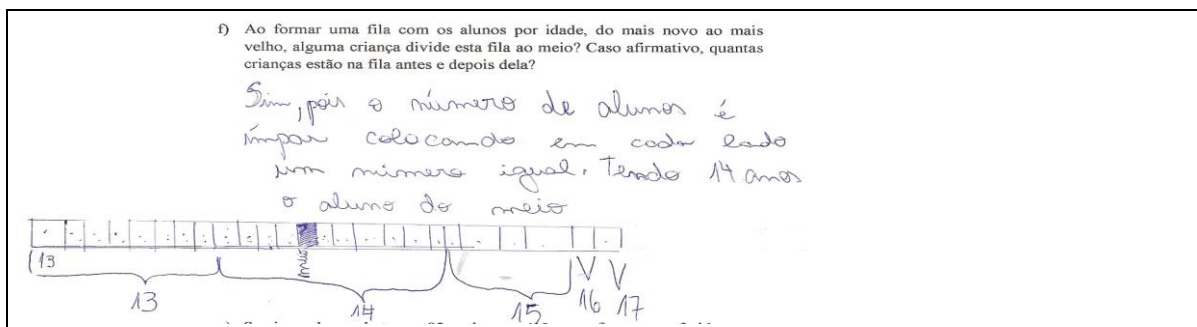 f) Ao formar uma fila com os alunos por idade, do mais novo ao mais
velho, alguma criança divide esta fila ao meio? Caso afirmativo, quantas
crianças estão na fila antes e depois dela?
Sim, pois o número de alunos é
ímpar colocando em cada lado
um número igual. Tendo 14 anos
o aluno do meio
meio
13
13
14
15
16
17